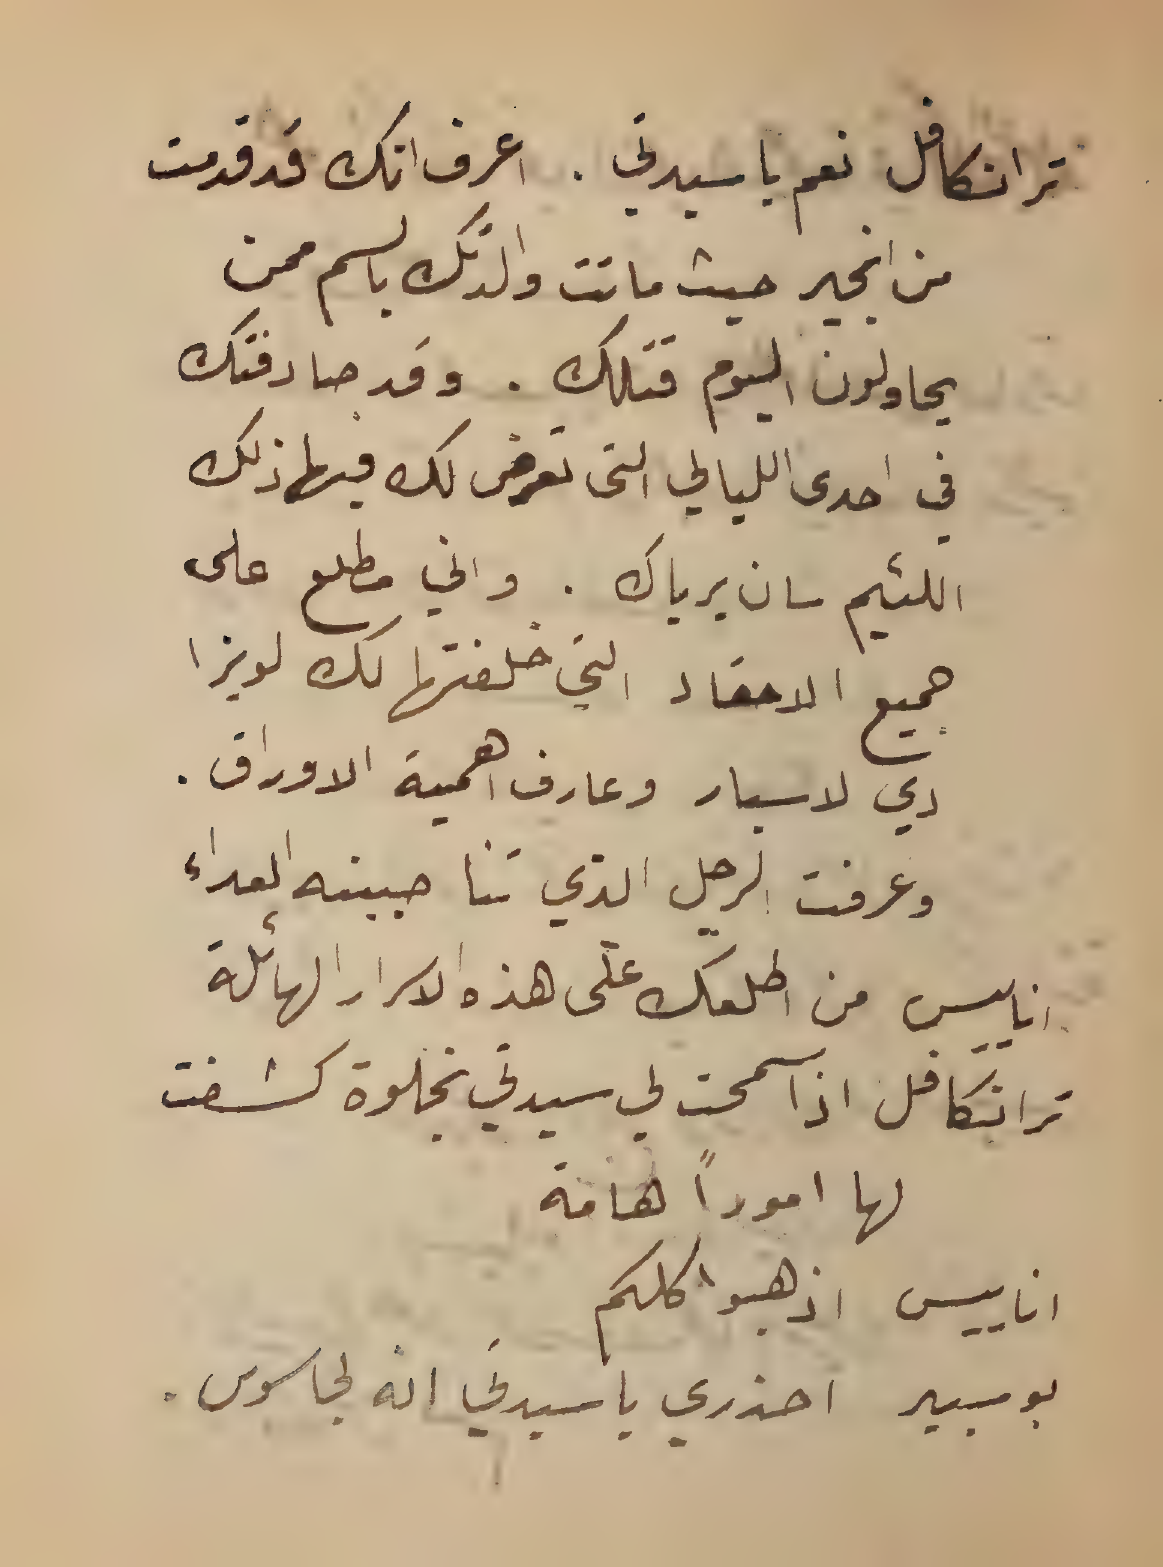 ترانكافل نعم يا سيدتي . اعرف انك قد قدمت
من انجير حيث ماتت والدتك بالسم ممن
يحاولون اليوم قتلك . وقد صادفتك
في احدى الليالي التي تعرض لك فيها ذلك
اللئيم سان يرياك . واني مطلع على
جميع الاحقاد التي خلفتها لك لويزا
دي لاسبار وعارف اهمية الاوراق .
وعرفت الرجل الذي تنا جبينه العداء
اناييس من اطلعك على هذه الاسرار الهائلة
ترانكافل اذا سمحت لي سيدتي بخلوة كشفت
لها اموراً هامة
اناييس اذهبوا كلكم
بومبير احذري يا سيدتي انه لجاسوس .